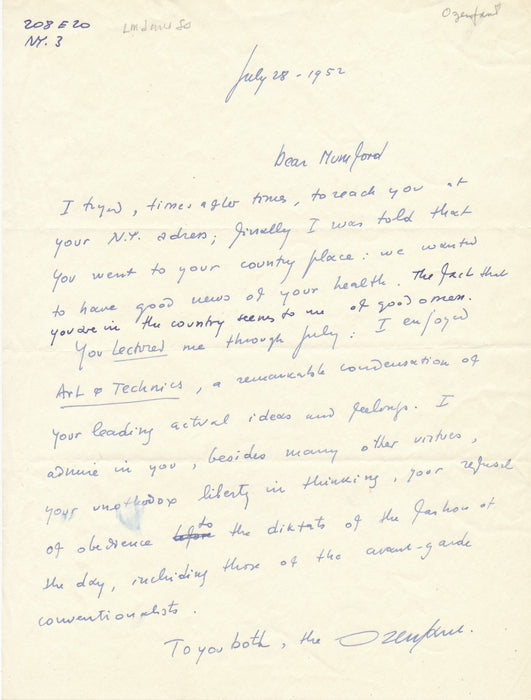 208 E 20
NY. 3
Ozenfant
July 28 - 1952
Dear Mumford
I tryed, times after times, to reach you at
your N.Y. adress; finally I was told that
you went to your country place: we wanted
to have good news of your health. The fact that
you are in the country seems to me of good omen.
You Lectured me through July: I enjoyed
Art & Technics, a remarkable condensation of
your leading actual ideas and feelings. I
admire in you, besides many other virtues,
your unothodox liberty in thinking, your refusal
of obedience before to the diktats of the fashion of
the day, including those of the avant-garde
conventionalists.
To you both, the Ozenfant.